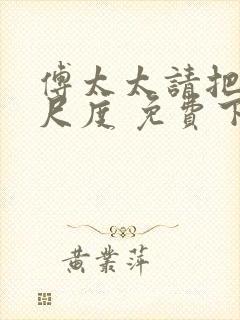 傅太太請把
尺度 免費下
黃業萍